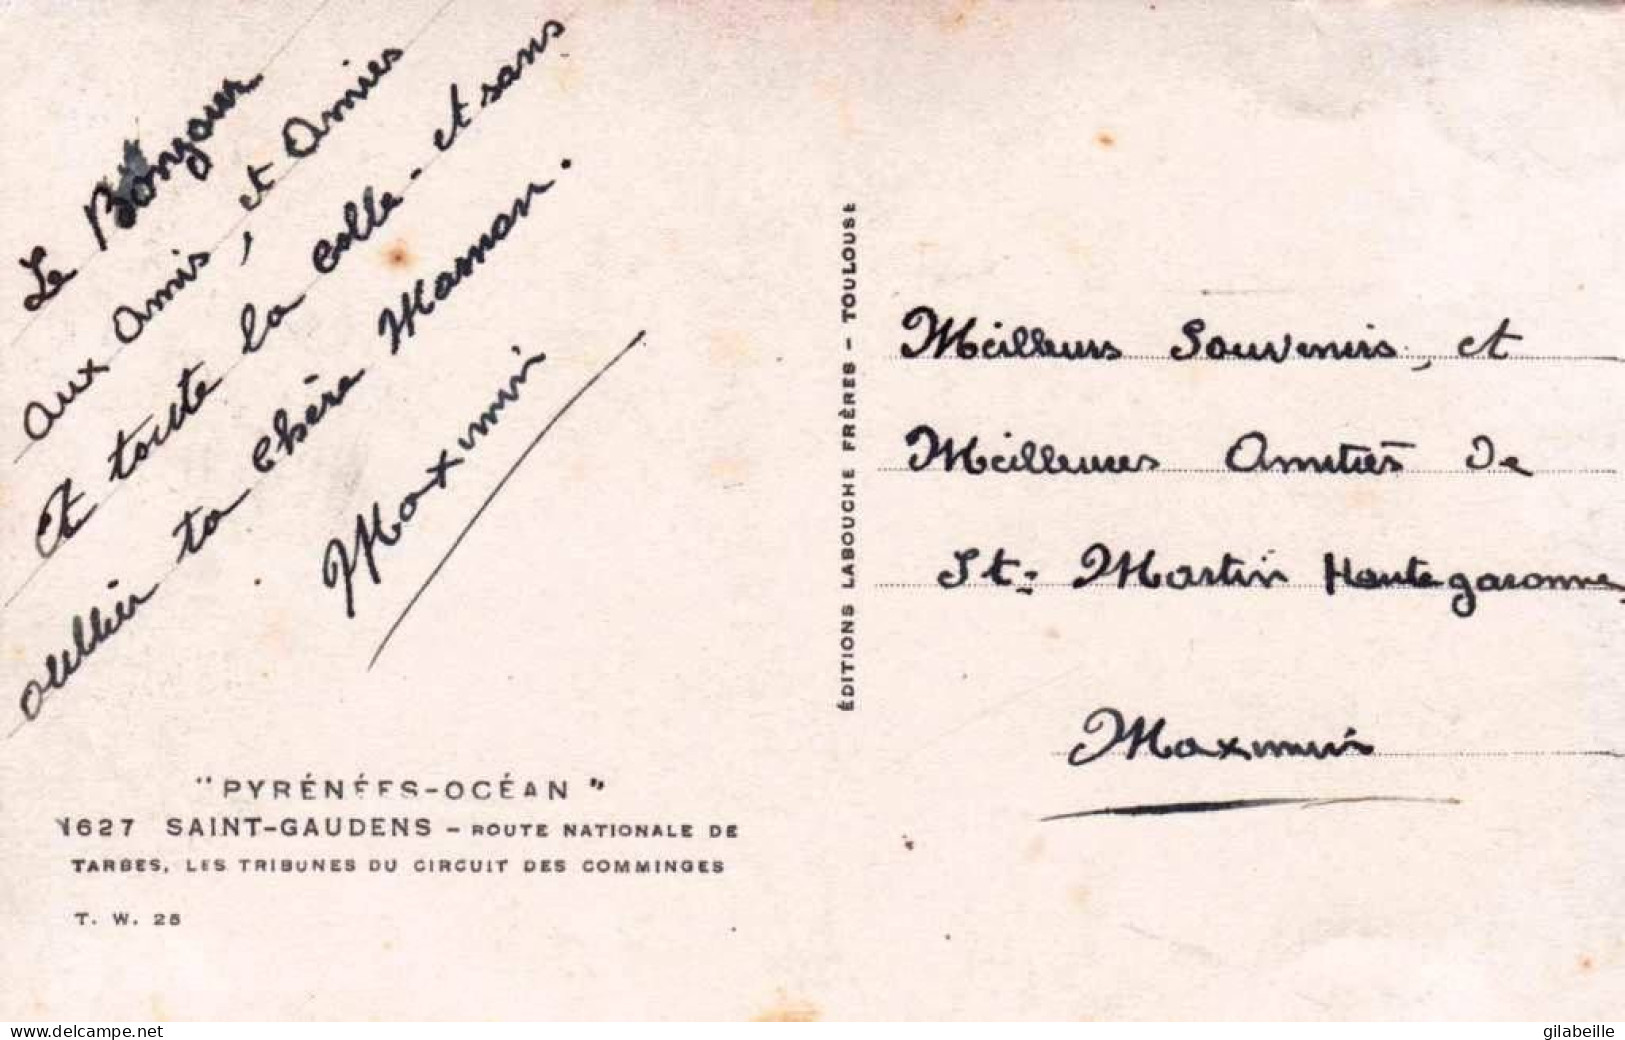 Le Bonjour
aux Amis, et Amies
Et toute la colle - et sans
oublier ta chère Maman.
Maximin
"PYRÉNÉES-OCÉAN"
1627 SAINT-GAUDENS - ROUTE NATIONALE DE
TARBES, LES TRIBUNES DU CIRCUIT DES COMMINGES
T. W. 25
ÉDITIONS LABOUCHE FRÈRES - TOULOUSE
Meilleurs Souvenirs, et
Meilleures Amitiés de
St- Martin Haute garonne
Maximin
www.delcampe.net
gilabeille